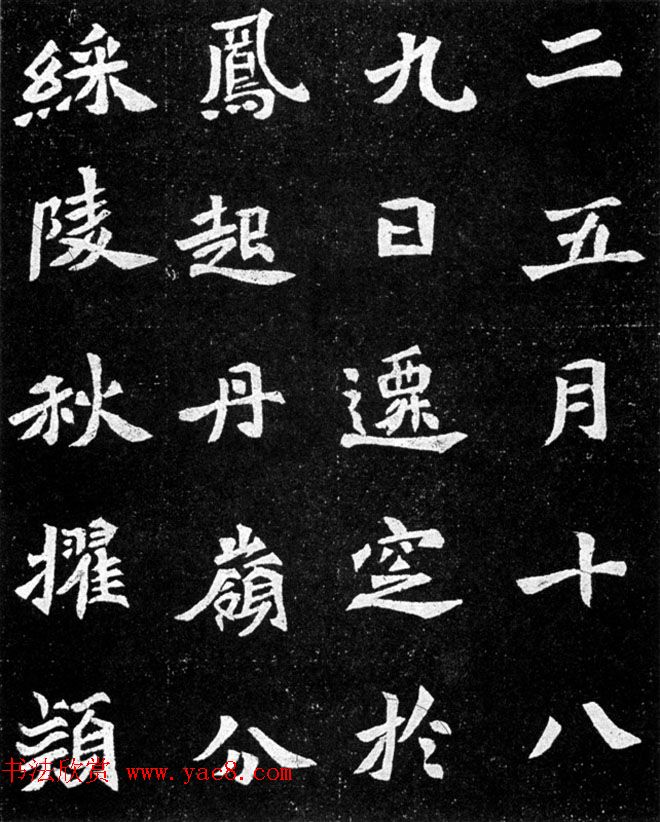 二五月十八
九日遷窆於
鳳起丹嶺分
綵陵秋擢
书法欣赏 www.yac8.com